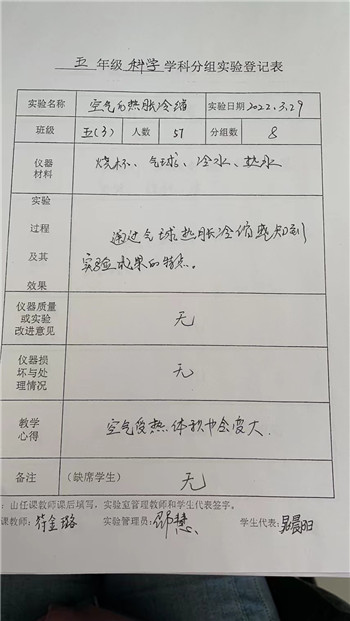 五 年级 科学 学科分组实验登记表
实验名称 空气的热胀冷缩 实验日期 2022.3.29
班级 五(3) 人数 57 分组数 8
仪器
材料
烧杯、气球、冷水、热水
实验
过程
及其
效果
通过气球热胀冷缩感知到
实验成果的特点。
仪器质量
或实验
改进意见
无
仪器损
坏与处
理情况
无
教学
心得
空气受热体积也会变大.
备注 (缺席学生) 无
:由任课教师课后填写,实验室管理教师和学生代表签字。
课教师: 符金璐 实验管理员: 邵慧 学生代表: 晨阳